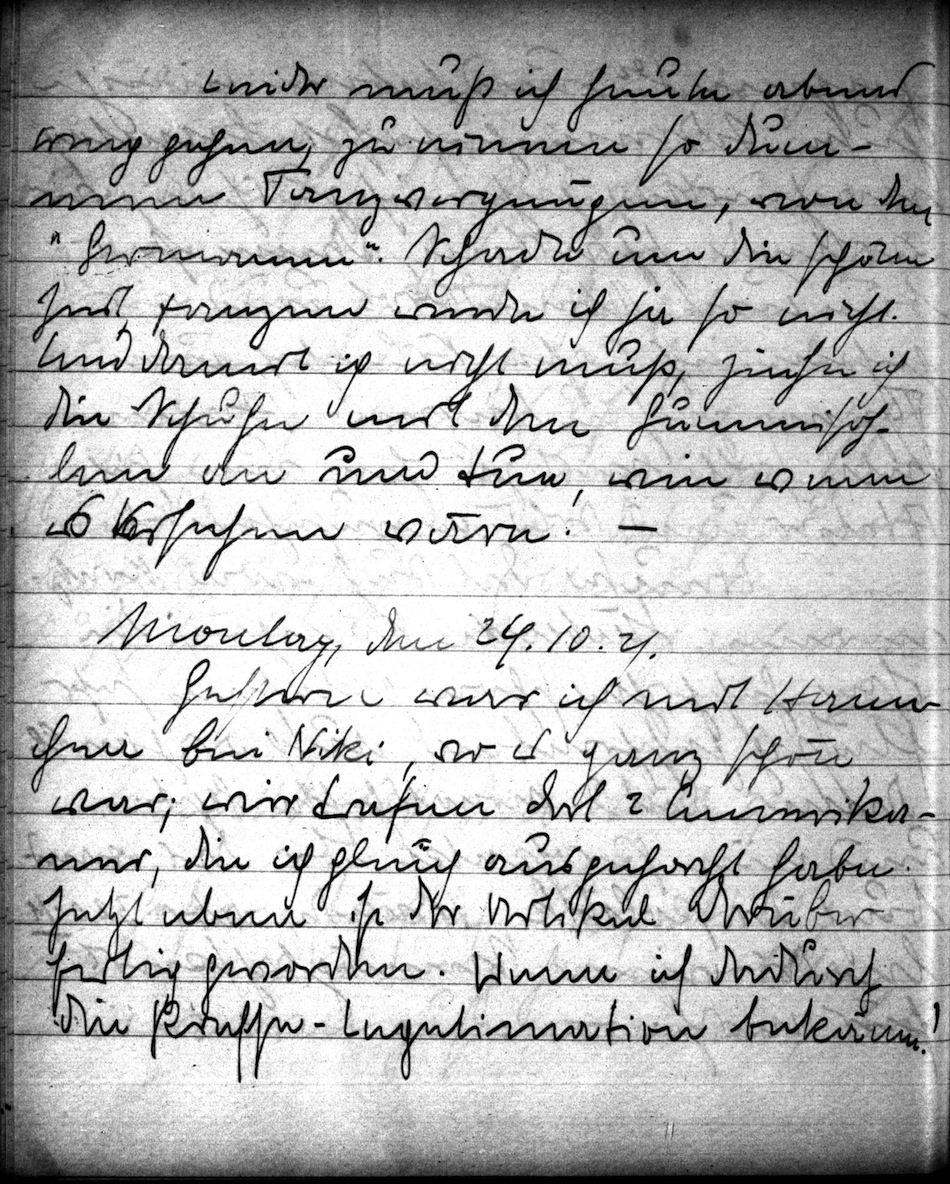 Leider muß ich heute abend
weggehen, zu einem so dum-
men Tanzvergnügen, von den
"Germanen". Schade um die schöne
Zeit, tanzen werde ich ja so nicht.
Und damit ich nicht muß, ziehe ich
die Schuhe mit den Gummisoh-
len an und tue, wie wenn
es Versehen wäre. —
Montag, den 24.10.21.
Gestern war ich mit Hann-
chen bei Niki, wo es ganz schön
war; wir trafen dort 2 Amerika-
ner, die ich gleich ausgehorcht habe.
Jetzt eben ist der Artikel darüber
fertig geworden. Wenn ich dadurch
die Presse-Legitimation bekäme!